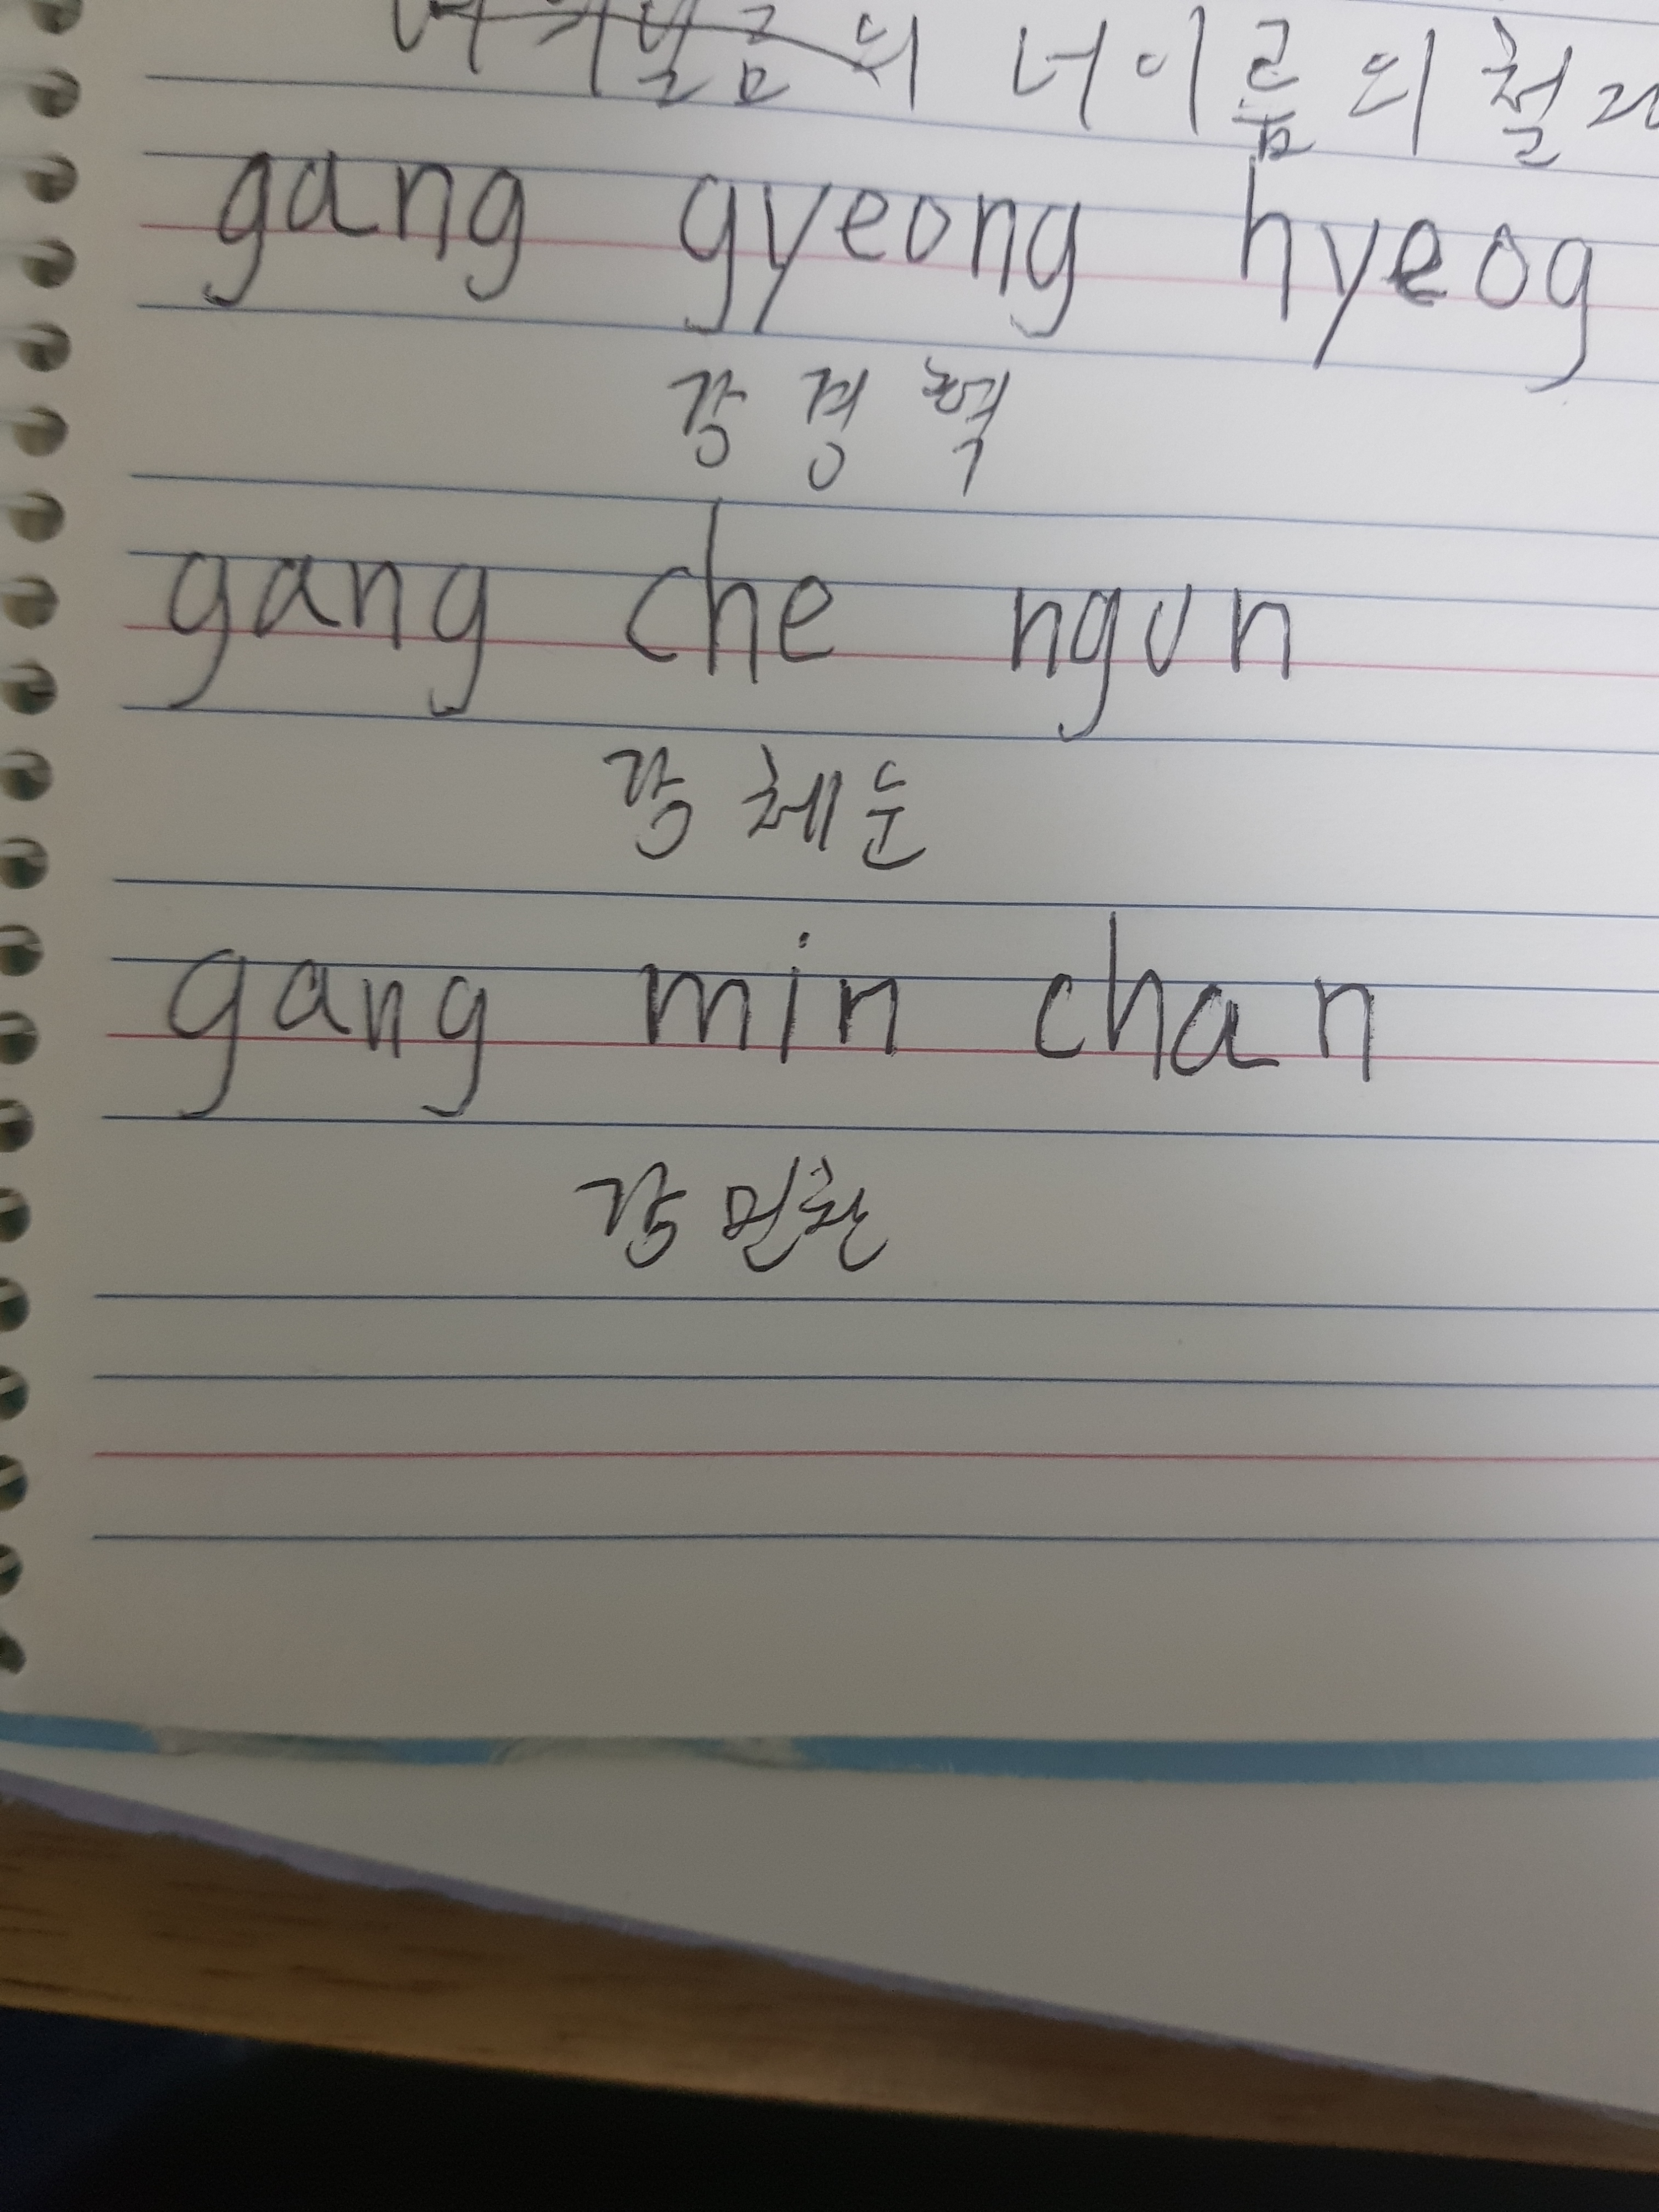 너이름의 철자
gang gyeong hyeog
강경혁
gang che ngun
강체눈
gang min chan
강민찬